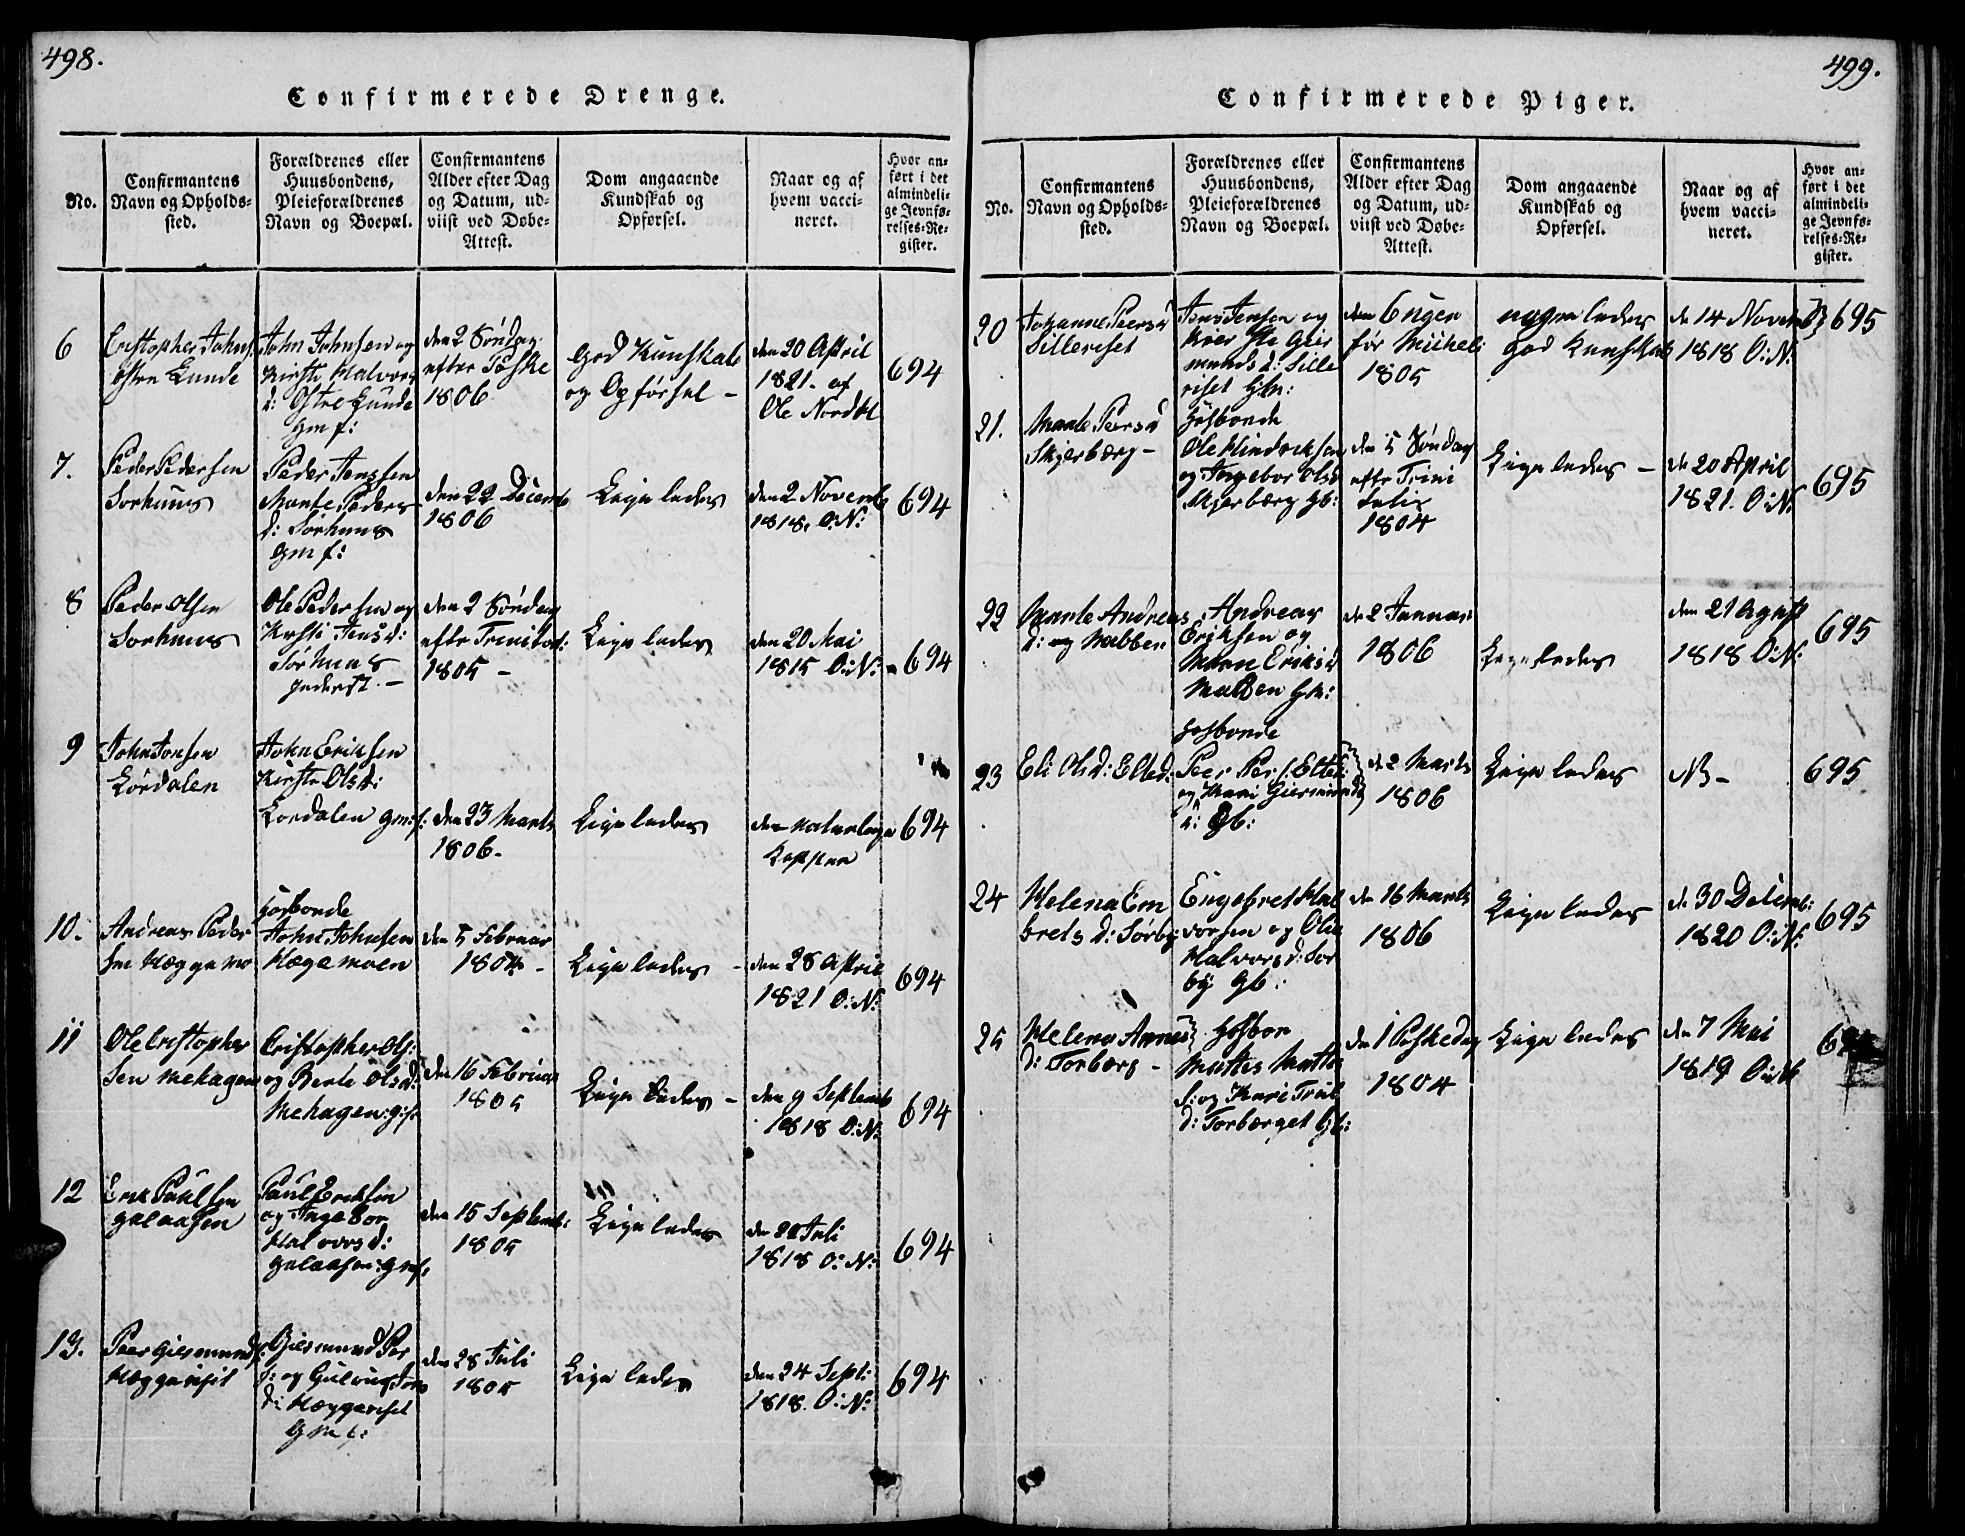 498.
Confirmerede Drenge.
No.
Confirmantens
Navn og Opholds-
sted.
Forældrenes eller
Huusbondens,
Pleieforældrenes
Navn og Boepæl.
Confirmantens
Alder efter Dag
og Datum, ud-
viist ved Døbe-
Attest.
Dom angaaende
Kundskab og
Opførsel.
Naar og af
hvem vacci-
neret.
Hvor an-
ført i det
almindeli-
ge Jevnfø-
relses-Re-
gister.
6
Cristopher Johns:
østre Lunde
John Johnsen og
Kirsti Halvors
d: Østre Lunde
gmf:
den 2 Søndag
efter Paske
1806
God Kunskab
og Opførsel -
den 20 April
1821. af
Ole Nordbl
694
7.
Peder Pedersen
Sorhuus
Peder Jenssen
Marte Peders
d: Sorhuus
gmf:
den 22 Decemb
1806
Ligeledes
den 2 Novemb
1818. O:N:
694
8
Peder Olsen
Sorhuus
Ole Pedersen og
Kirsti Jensd:
Sørhuus
Inderst. -
den 2 Søndag
efter Trinitat:
1805 -
Ligeledes
den 20 Mai
1815 O:N:
694
9
John Jonsen
Lørdalen
John Eriksen
Kirste Olsd:
Lordalen gmf:
den 23 Marts
1806 -
Ligeledes
den naturlige
Kopper
694
10.
Andreas Peder
sen Hæggemo
Hosbonde
John Johnsen
Hægemoen
den 5 Februar
1804 -
Ligeledes -
den 28 April
1821 O:N:
694
11
Ole Cristopher
sen Mehagen
Cristopher Ols:
og Berte Olsd:
Mehagen: g:f:
den 16 Februar
1805
Ligeledes -
den 9 Septemb
1818 O:N:
694
12
Erik Paulsen
galaasen
Paul Eriksen
og Ingebor
Halvorsd:
galaasen: gmf:
den 15 Septemb:
1805
Ligeledes
den 20 Juli
1818 O: N:
694
13.
Peer Giermunds:
Hæggeriset
Giermund Per
s: og Gulrug Jons
d: Hæggeriset
gmf:
den 28 Juli
1805
Ligeledes
den 24 Sept:
1818. O:N:
694
499.
Confirmerede Piger.
No.
Confirmantens
Navn og Opholds-
sted.
Forældrenes eller
Huusbondens,
Pleieforældrenes
Navn og Boepæl.
Confirmantens
Alder efter Dag
og Datum, ud-
viist ved Døbe-
Attest.
Dom angaaende
Kundskab og
Opførsel.
Naar og af
hvem vacci-
neret.
Hvor an-
ført i det
almindeli-
ge Jevnfø-
relses-Re-
gister.
20
Johanne Peersd
Silleriset
Jens Jensen og
Geir
munds d: Sille
riset Gb:
den 6 ugen
før Micheli
1805
god Kunskab
de 14 Novemb
1818 O:N:
695
21.
Marte Peersd
Skjerbærg -
Hosbonde
Ole Hindrichsen
og Ingebor Olsd
Skjerbærg Gb:
den 5 Søndag
efter Trini
tatis
1804
Ligeledes -
de 20 April
1821. O:N:
695
22
Marte Andreas
d: og Mabben
Andreas
Eriksen og
Maren Eriksd
Mabben Gb:
de 2 Januari
1806
Ligeledes
den 21 Agust
1818 O:N:
695
23
Eli Olsd: Elted:
Hosbonde
Peer Pers: Elted:
og Mari Giermunds
d: Gb:
de 2 Marts
1806
Ligeledes
NB -
695
24
Helena Em
brets d: Sorby
Engebret Hal
vorsen og Olia
Halvorsd: Sor
by Gb:
de 16 Marts
1806
Ligeledes
de 30 Decemb:
1820 O:N:
695
25
Helena Arnes
d: Torberg -
Hosbon
Mattes Mattes
s: og Kari Trul
d: Torbærget Gb:
den 1 Paskedag
1804
Ligeledes
den 7 Mai
1819 O:N